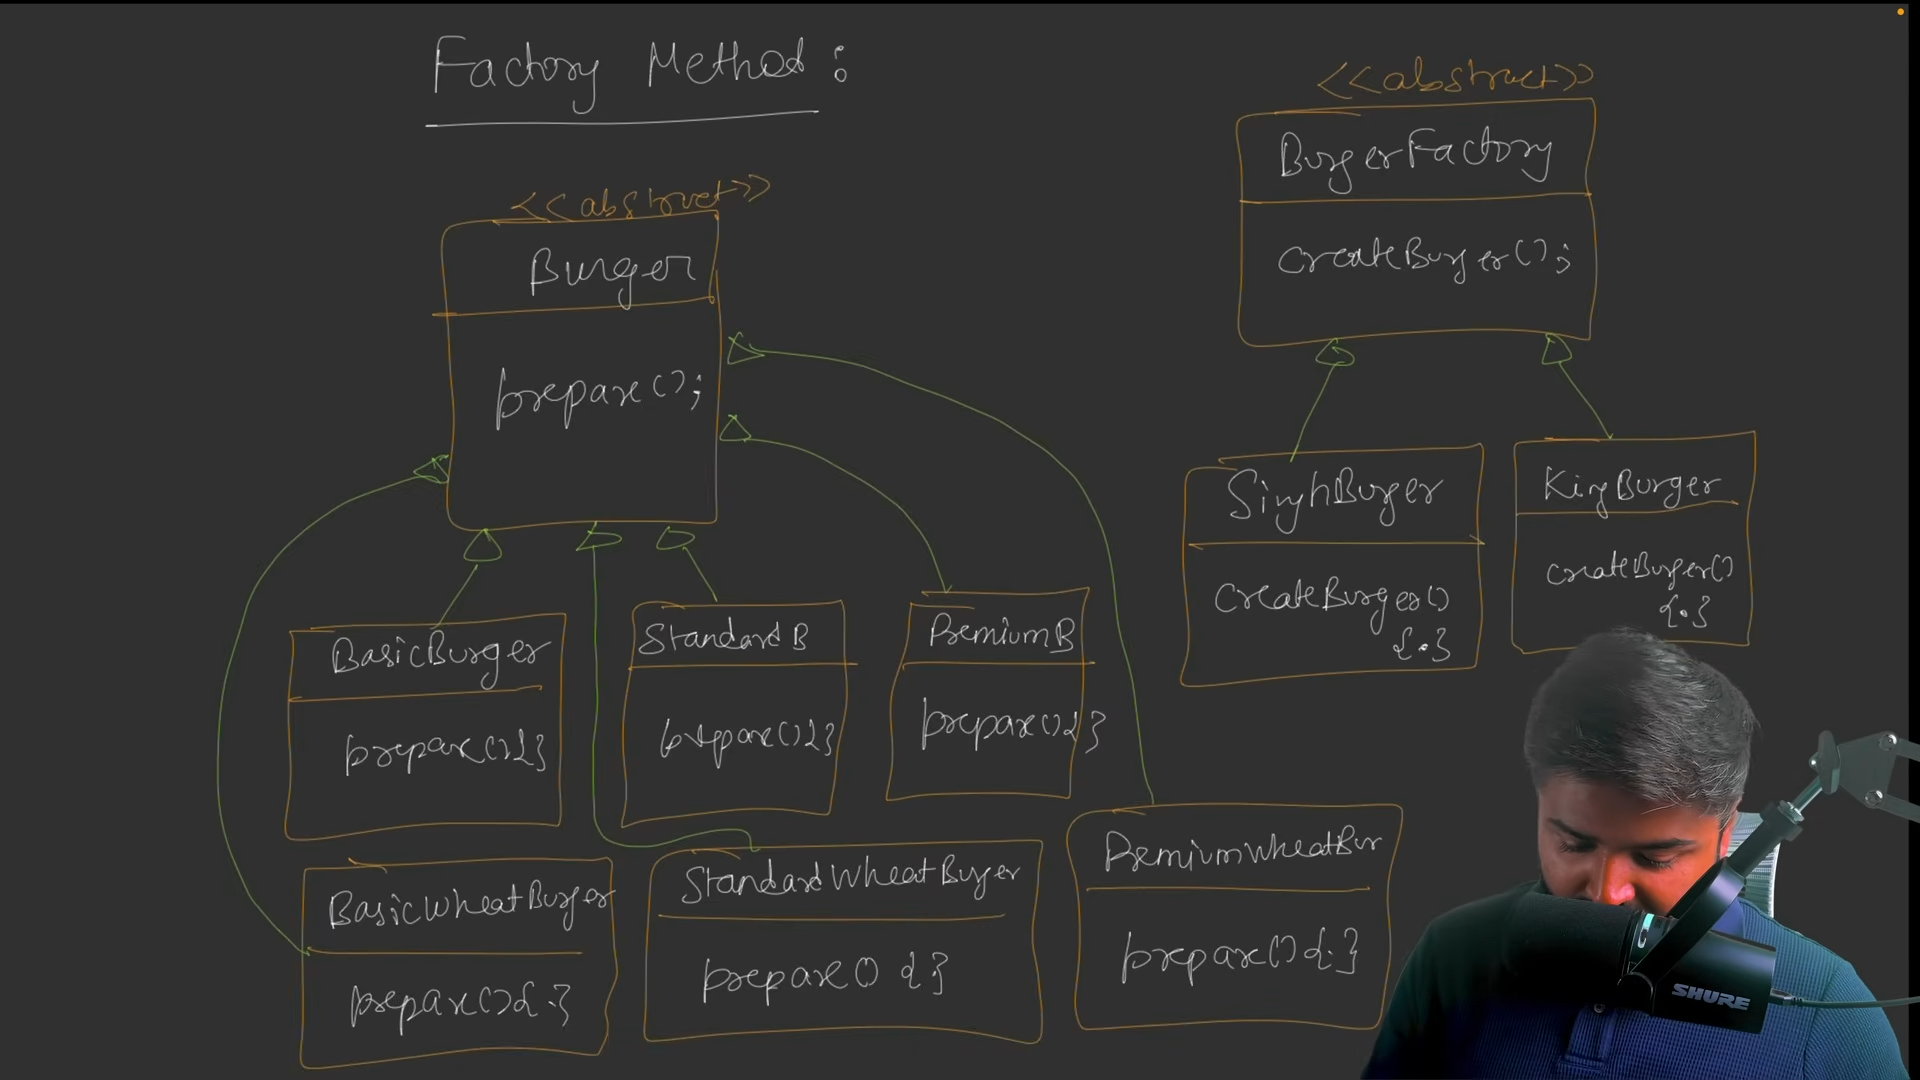 Factory Method:
<<abstract>>
Burger
prepare();
BasicBurger
prepare(){}
StandardB
prepare(){}
PremiumB
prepare(){}
BasicWheatBurger
prepare(){.}
StandardWheatBurger
prepare() {.}
PremiumWheatBur
prepare(){.}
<<abstract>>
BurgerFactory
createBurger();
SinghBurger
createBurger()
{.}
KingBurger
createBurger()
{.}
SHURE